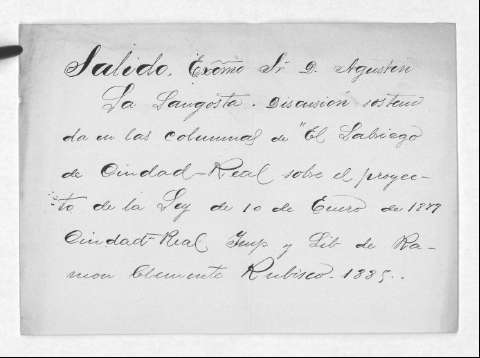 Salido, Excmo Sr D. Agustin
La Langosta. Discusión sosteni
da en las columnas de "El Labriego
de Ciudad-Real sobre el proyec-
to de la Ley de 10 de Enero de 1879
Ciudad-Real Imp y Lib de Ra-
mon Clemente Rubisco. 1885..